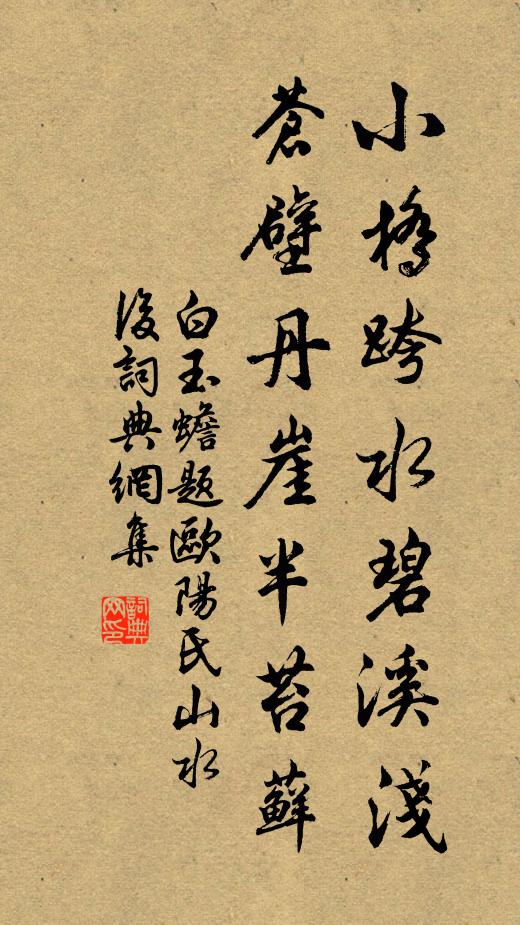 小橋跨水碧溪淺
蒼壁丹崖半苔蘚
白玉蟾題歐陽氏山水
後詞典網集
詞典
网印